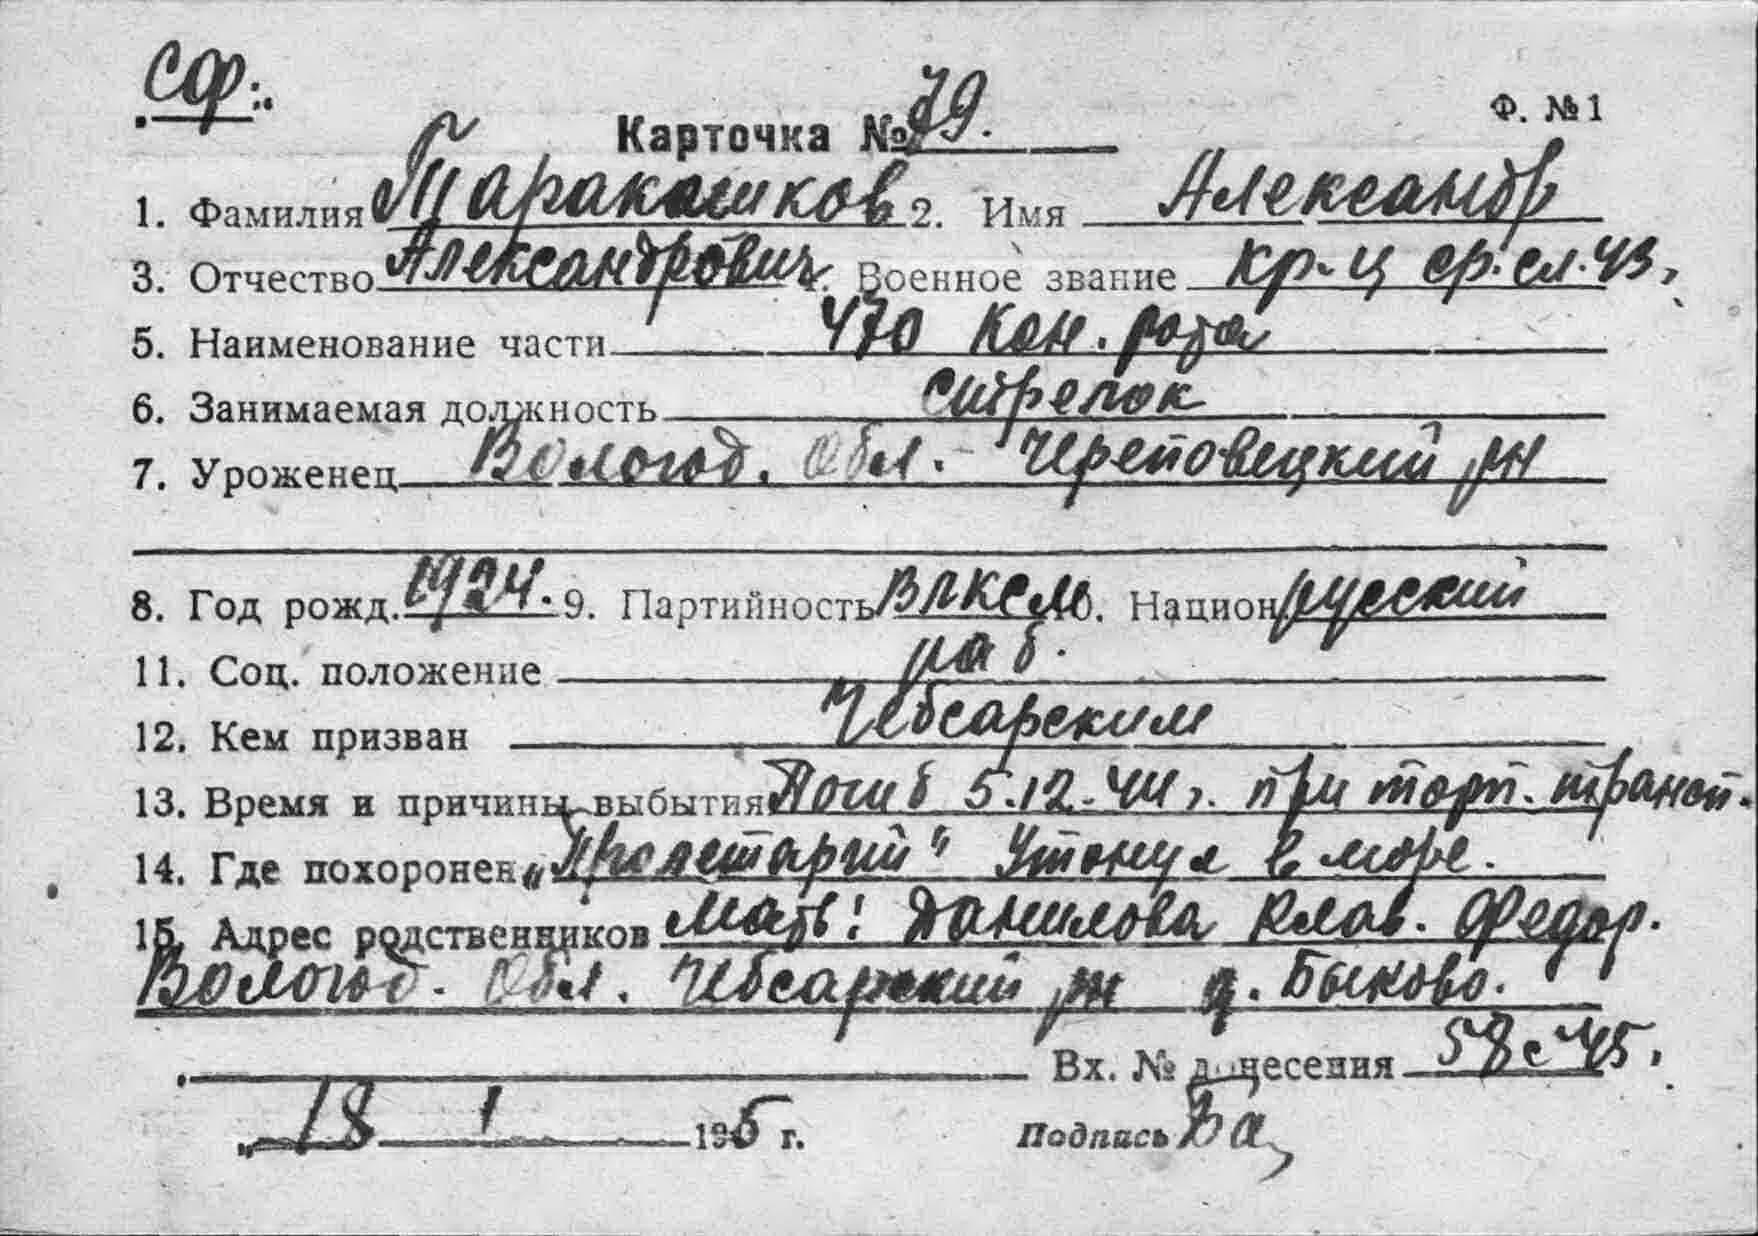 СФ.
Ф. № 1
Карточка № 79.
1. Фамилия Таракашков 2. Имя Александр
3. Отчество Александрович 4. Военное звание кр-ц ср.сл.43г
5. Наименование части 470 кон. рота
6. Занимаемая должность стрелок
7. Уроженец Вологод. Обл. - Череповецкий рн
8. Год рожд. 1924. 9. Партийность ВЛКСМ 10. Национ русский
11. Соц. положение раб.
12. Кем призван Чебсарским
13. Время и причины выбытия Погиб 5.12.44г. при торп. трансп.
14. Где похоронен „Пролетарий" Утонул в море.
15. Адрес родственников Мать: Данилова Клав. Федор.
Вологод. Обл. Чебсарский рн д. Быково.
Вх. № донесения 58с 45г
„ 18 1 195 г. Подпись Ба